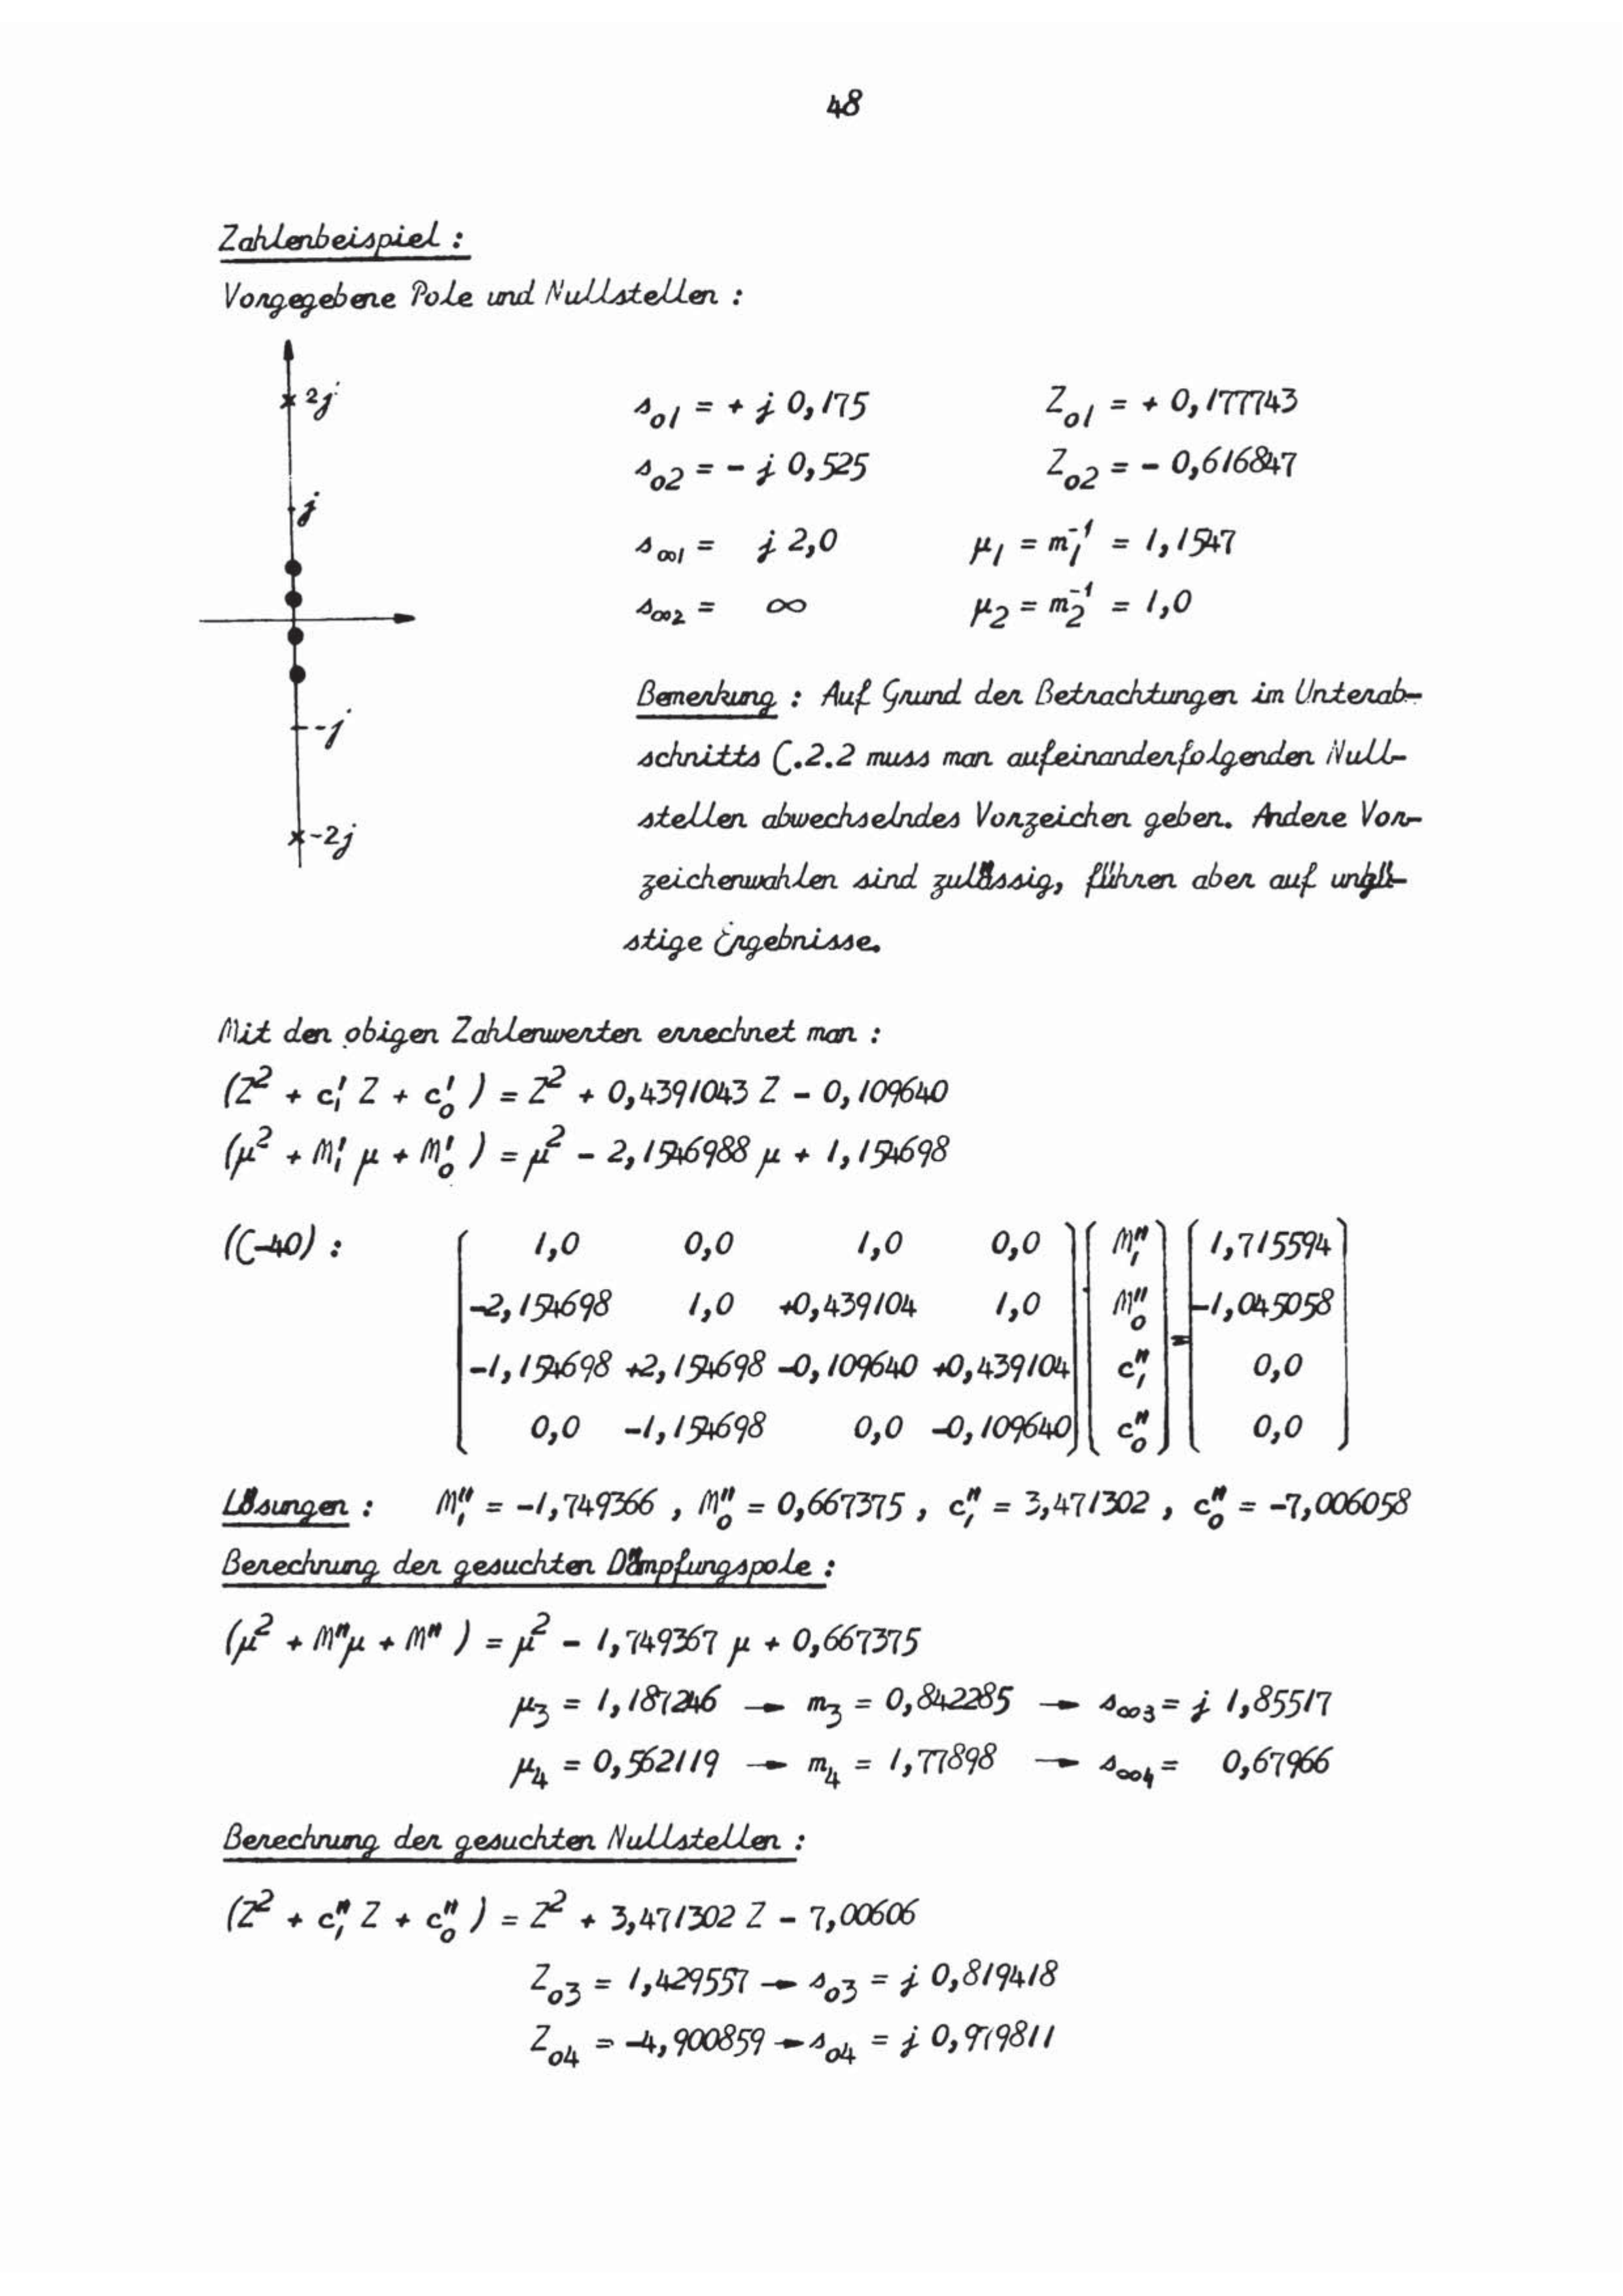 48
Zahlenbeispiel :
Vorgegebene Pole und Nullstellen :
2j
j
-j
-2j
s_o1 = + j 0,175    Z_o1 = + 0,177743
s_o2 = - j 0,525    Z_o2 = - 0,616847
s_∞1 = j 2,0    μ_1 = m_1^-1 = 1,1547
s_∞2 = ∞    μ_2 = m_2^-1 = 1,0
Bemerkung : Auf Grund der Betrachtungen im Unterab-
schnitts C.2.2 muss man aufeinanderfolgenden Null-
stellen abwechselndes Vorzeichen geben. Andere Vor-
zeichenwahlen sind zulässig, führen aber auf ungü-
stige Ergebnisse.
Mit den obigen Zahlenwerten errechnet man :
(Z² + c₁' Z + c₀' ) = Z² + 0,4391043 Z - 0,109640
(μ² + M₁' μ + M₀' ) = μ² - 2,1546988 μ + 1,154698
(C-40) :
1,0 0,0 1,0 0,0 M₁" 1,715594
-2,154698 1,0 +0,439104 1,0 · M₀" -1,045058
-1,154698 +2,154698 -0,109640 +0,439104 c₁" = 0,0
0,0 -1,154698 0,0 -0,109640 c₀" 0,0
Lösungen : M₁" = -1,749366 , M₀" = 0,667375 , c₁" = 3,471302 , c₀" = -7,006058
Berechnung der gesuchten Dämpfungspole :
(μ² + M"μ + M" ) = μ² - 1,749367 μ + 0,667375
μ₃ = 1,187246 → m₃ = 0,842285 → s_∞3 = j 1,85517
μ₄ = 0,562119 → m₄ = 1,77898 → s_∞4 = 0,67966
Berechnung der gesuchten Nullstellen :
(Z² + c₁" Z + c₀" ) = Z² + 3,471302 Z - 7,00606
Z_o3 = 1,429557 → s_o3 = j 0,819418
Z_o4 = -4,900859 → s_o4 = j 0,979811